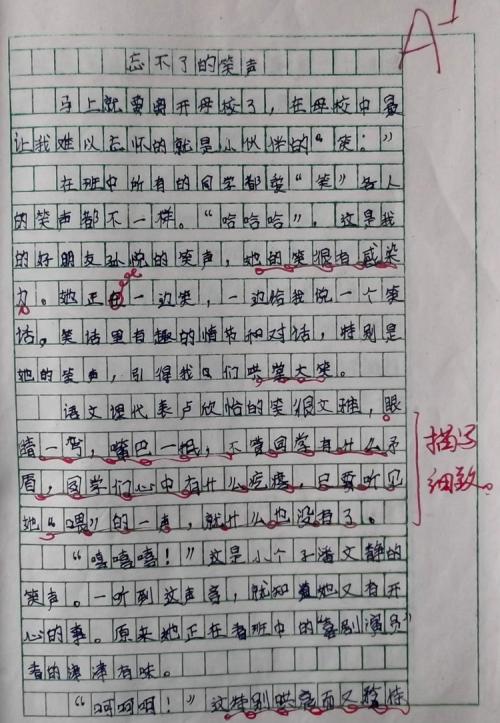 A+
忘不了的笑声
马上就要离开母校了,在母校中最
让我难以忘怀的就是小伙伴的“笑:”
在班中所有的同学都爱“笑”各人
的笑声都不一样。“哈哈哈”,这是我
的好朋友孙悦的笑声,她的笑很有感染
力。她正在一边笑,一边给我说一个笑
话。笑话里有趣的情节和对话,特别是
她的笑声,引得我们哄堂大笑。
语文课代表卢欣怡的笑很文雅,眼
睛一弯,嘴巴一抿,不管同学有什么矛
盾,同学们心中有什么疙瘩,只要听见
她“嘿”的一声,就什么也没有了。
描写
细致。
“嘻嘻嘻!”这是小个子潘文静的
笑声。一听到这声音,就知道她又有开
心的事。原来她正在看班中的“喜剧演员”
看的津津有味。
“呵呵呵!”这特别哄亮而又